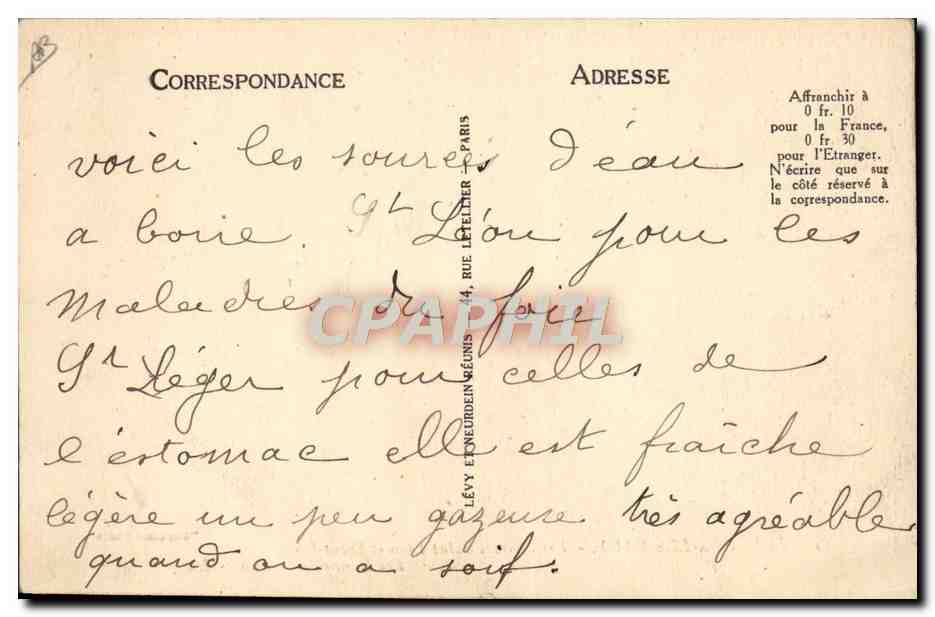 CORRESPONDANCE
ADRESSE
Affranchir à
0 fr. 10
pour la France,
0 fr 30
pour l'Etranger.
N'écrire que sur
le côté réservé à
la correspondance.
voici les sources d'éau
a boire. St Léon pour les
maladies du foie
St Léger pour celles de
l'éstomac elle est fraîche
légère un peu gazeuse très agréable
quand on a soif.
LÉVY ET NEURDEIN RÉUNIS 44, RUE LETELLIER - PARIS
CPAPHIL